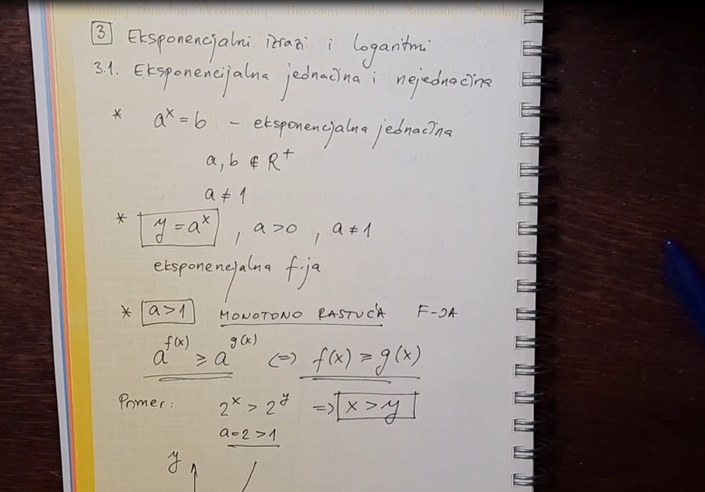 3 Eksponencijalni izrazi i logaritmi
3.1. Eksponencijalna jednačina i nejednačina
* aˣ = b – eksponencijalna jednačina
a, b ∈ R⁺
a ≠ 1
* y = aˣ , a > 0 , a ≠ 1
eksponencijalna f-ja
* a > 1 MONOTONO RASTUĆA F-JA
a^f(x) ≥ a^g(x) (=) f(x) ≥ g(x)
Primer: 2ˣ > 2ʸ => x > y
a = 2 > 1
y